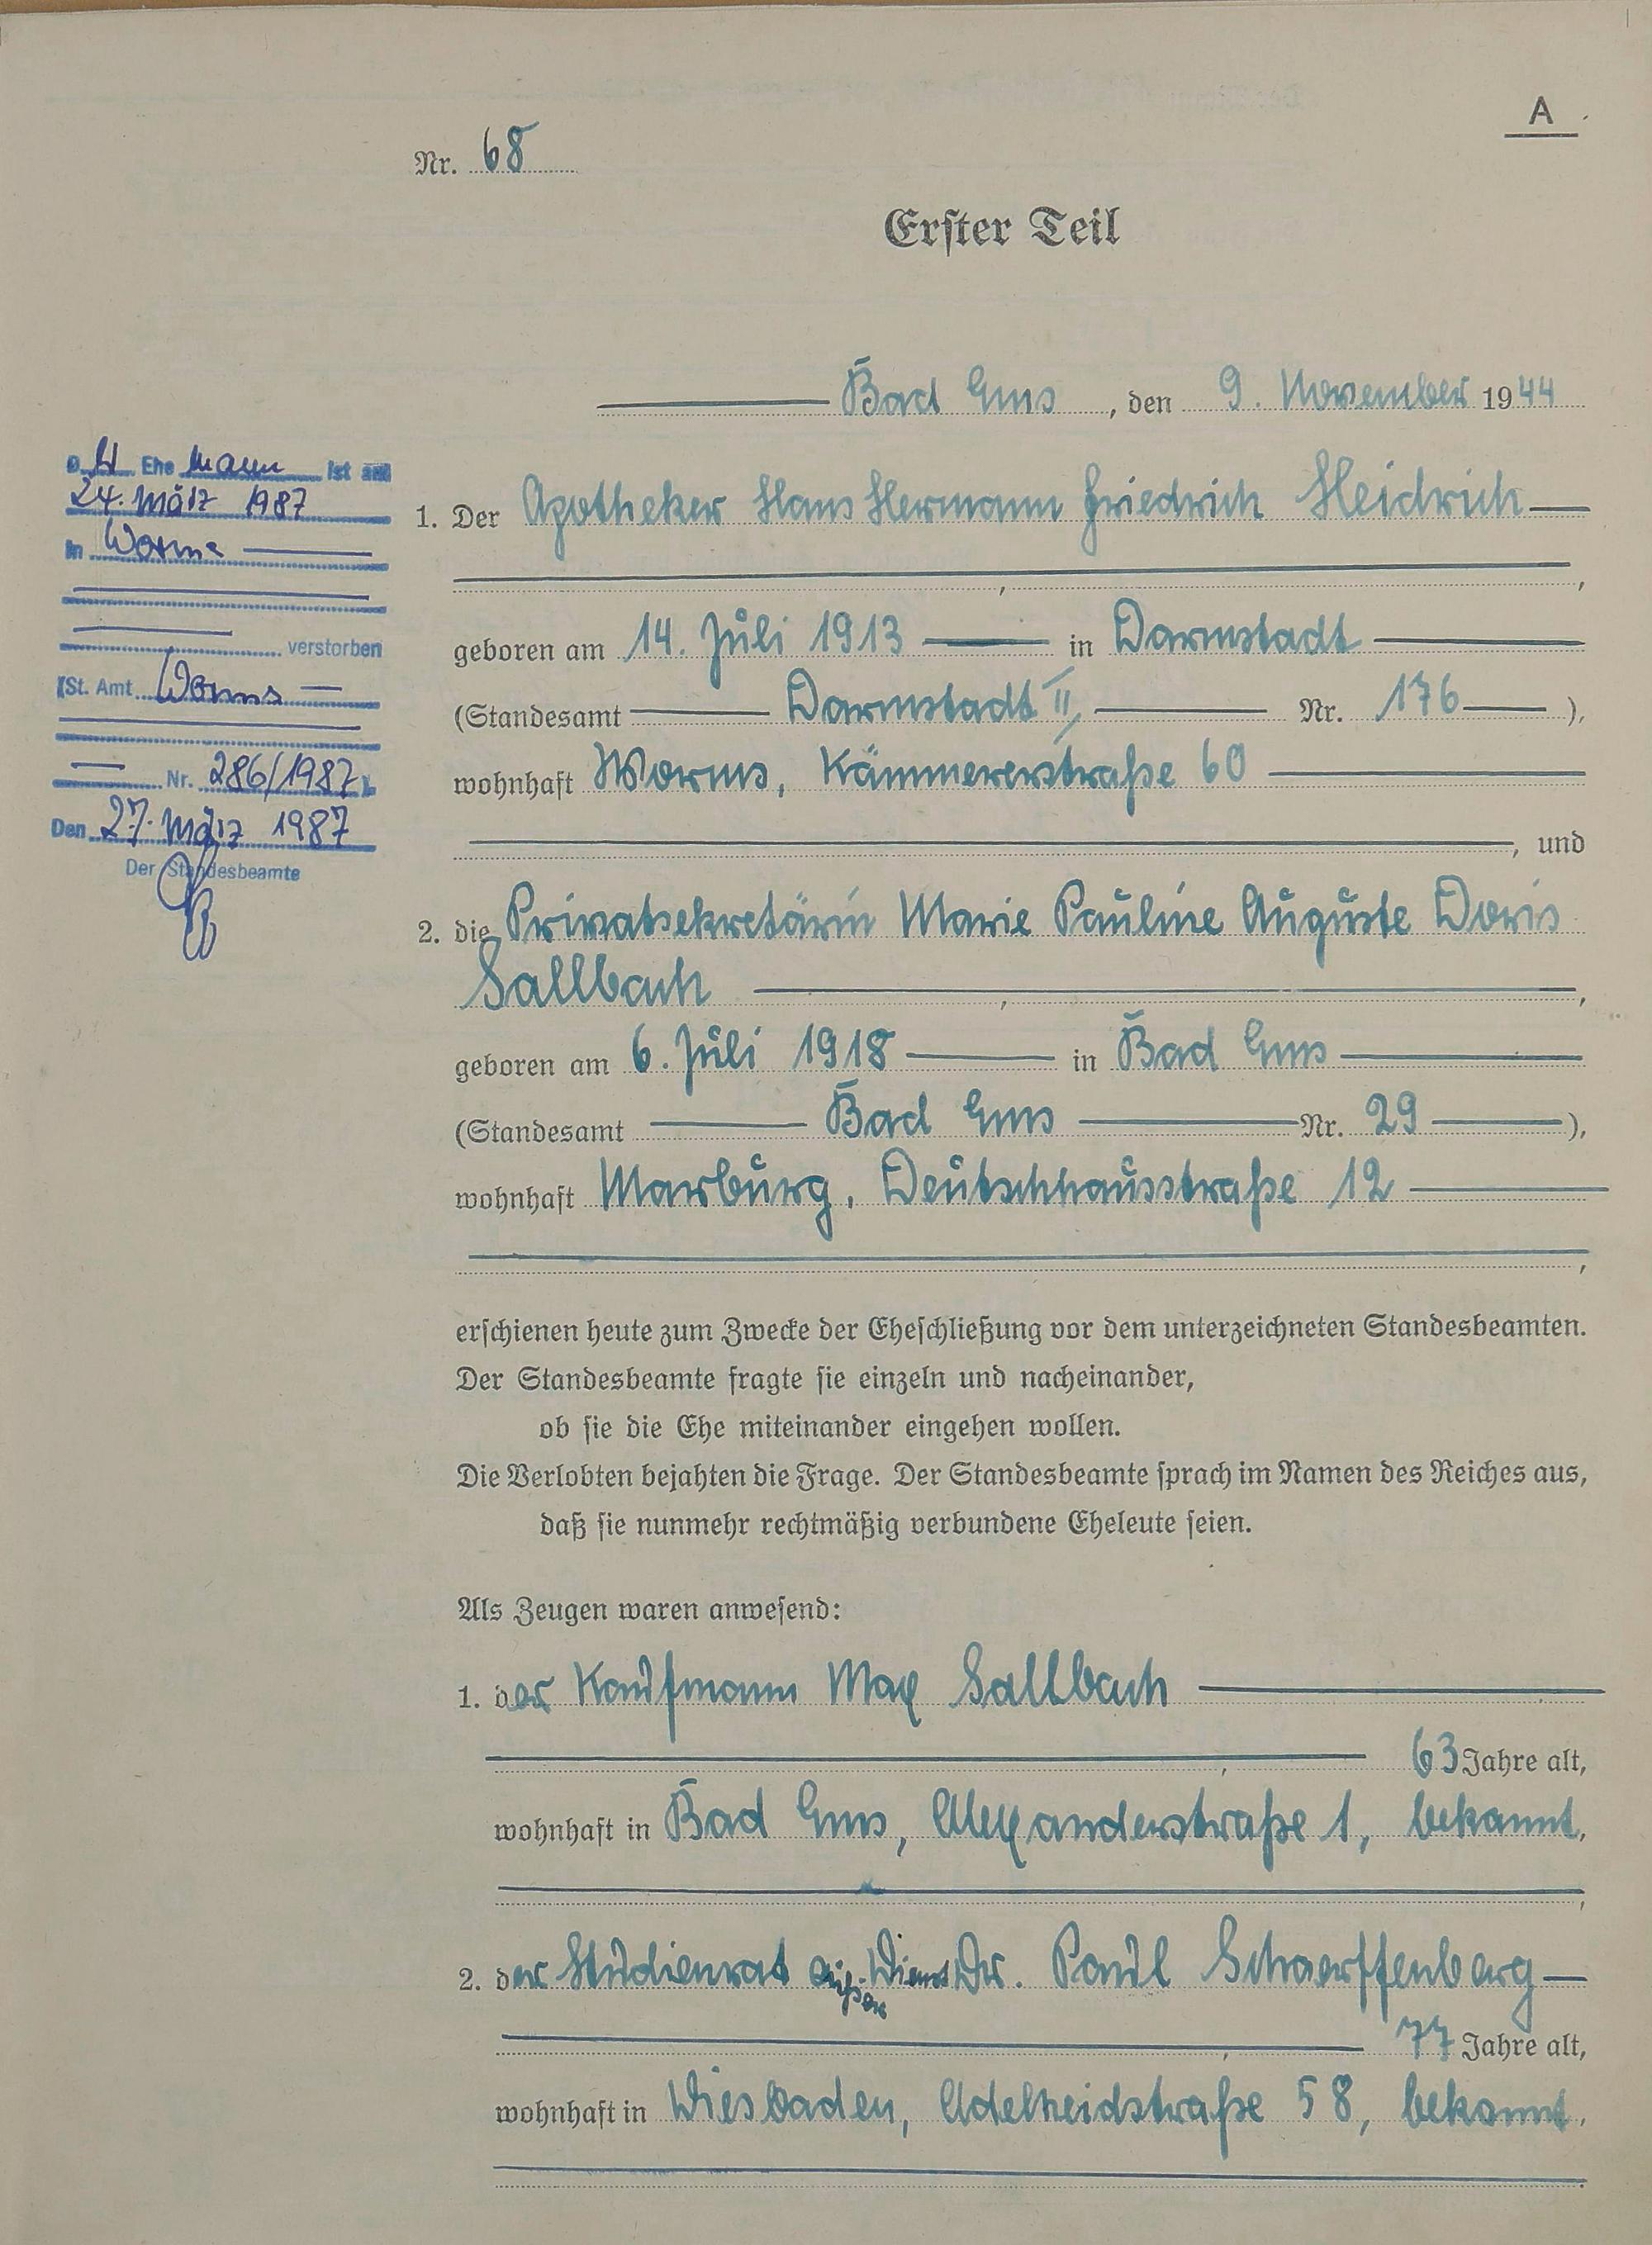 A
Nr. 68
Erster Teil
Bad Ems, den 9. November 1944
Der Ehemann ist am
24. März 1987
in Worms
verstorben
(St. Amt Worms
Nr. 286/1987).
Den 27. März 1987
Der Standesbeamte
1. Der Apotheker Hans Hermann Friedrich Heidrich
,
geboren am 14. Juli 1913 in Darmstadt
(Standesamt Darmstadt II, Nr. 176 ),
wohnhaft Worms, Kämmererstraße 60
, und
2. die Privatsekretärin Marie Pauline Auguste Doris
Sallbach ,
geboren am 6. Juli 1918 in Bad Ems
(Standesamt Bad Ems Nr. 29 ),
wohnhaft Marburg, Deutschhausstraße 12
,
erschienen heute zum Zwecke der Eheschließung vor dem unterzeichneten Standesbeamten.
Der Standesbeamte fragte sie einzeln und nacheinander,
ob sie die Ehe miteinander eingehen wollen.
Die Verlobten bejahten die Frage. Der Standesbeamte sprach im Namen des Reiches aus,
daß sie nunmehr rechtmäßig verbundene Eheleute seien.
Als Zeugen waren anwesend:
1. der Kaufmann Max Sallbach
, 63 Jahre alt,
wohnhaft in Bad Ems, Alexanderstraße 1, bekannt,
,
2. der Studienrat außer Dienst Dr. Paul Schaerffenberg
, 77 Jahre alt,
wohnhaft in Wiesbaden, Adelheidstraße 58, bekannt.